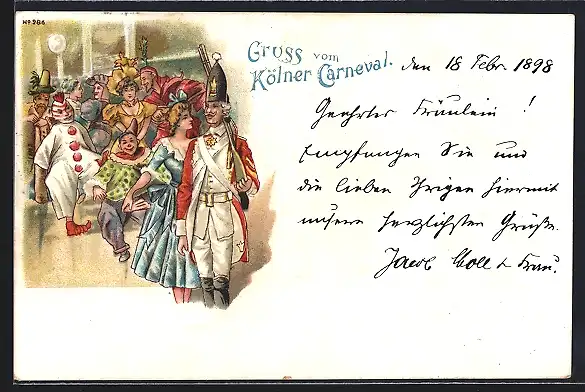 No 286
Gruss vom
Kölner Carneval.
den 18 Febr. 1898
Geehrtes Fräulein!
Empfangen Sie und
die lieben Ihrigen hiermit
unsere herzlichsten Grüße.
Jacob Moll & Frau.